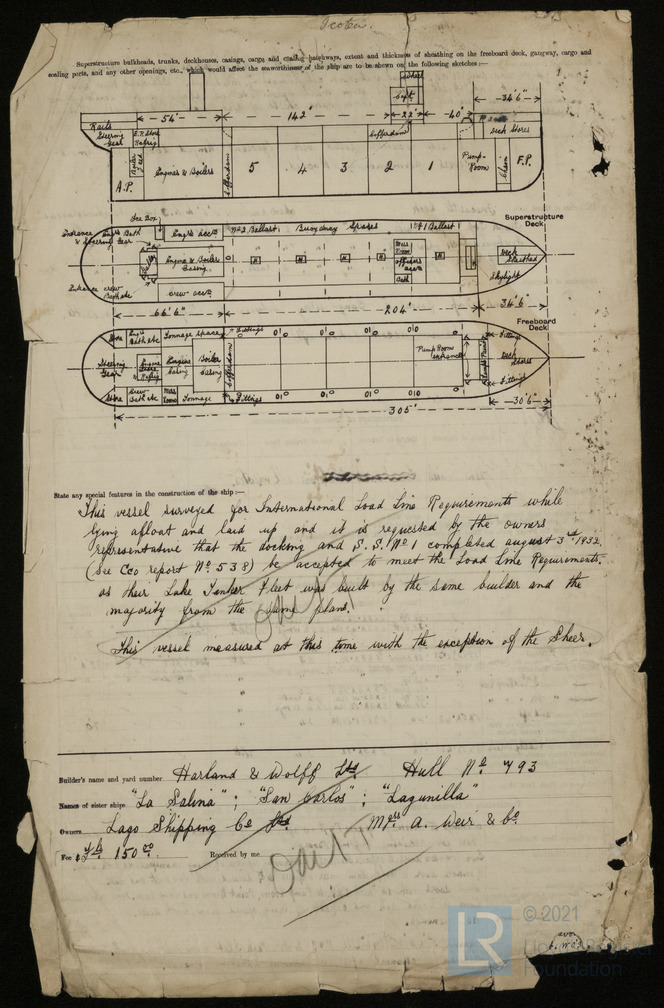 Superstructure bulkheads, trunks, deckhouses, casings, cargo and coaling hatchways, extent and thickness of sheathing on the freeboard deck, gangway, cargo and
coaling ports, and any other openings, etc., which would affect the seaworthiness of the ship are to be shown on the following sketches :—
34'6"
54' 142' 22' 40'
Rails
Steering Gear
Cofferdam
Deck Stores
A.P. Engines & Boilers Cofferdam 5 4 3 2 1 Pump-Room Chain F.P.
Superstructure Deck
Ice Box
Entrance & Steering Gear
Engrs Bath
Engrs acc
No 2 Ballast Buoyancy Spaces No 1 Ballast
Engine & Boiler Casing
Mess Room
Officers acc
Bath
Deck Sheathed
Skylight
Entrance crew Bath etc
crew acc
66'6" 204' 34'6
Freeboard Deck
Store
Bath etc
Tonnage space
Fittings
Steering Gear
Engine Casing
Boiler Casing
Cofferdam
Pump Room entrance
Deck Stores
Fittings
Store
Crew Bath etc
Mess Room
Tonnage
Fittings
30'6"
305'
State any special features in the construction of the ship :—
This vessel surveyed for International Load Line Requirements while
lying afloat and laid up and it is requested by the owners
representative that the docking and S.S. No 1 completed august 3rd 1932
(see Cco report No 538) be accepted to meet the Load Line Requirements.
as their Lake Tanker Fleet was built by the same builder and the
majority from the same plans.
This vessel measured at this time with the exception of the Sheer.
Builder's name and yard number Harland & Wolff Ltd Hull No 793
Names of sister ships "La Salina" ; "San Carlos" ; "Lagunilla"
Owners Lago Shipping Co Ltd Mgrs A. Weir & Co
Fee 150.00 Received by me
LR © 2021
Lloyd's Register
Foundation